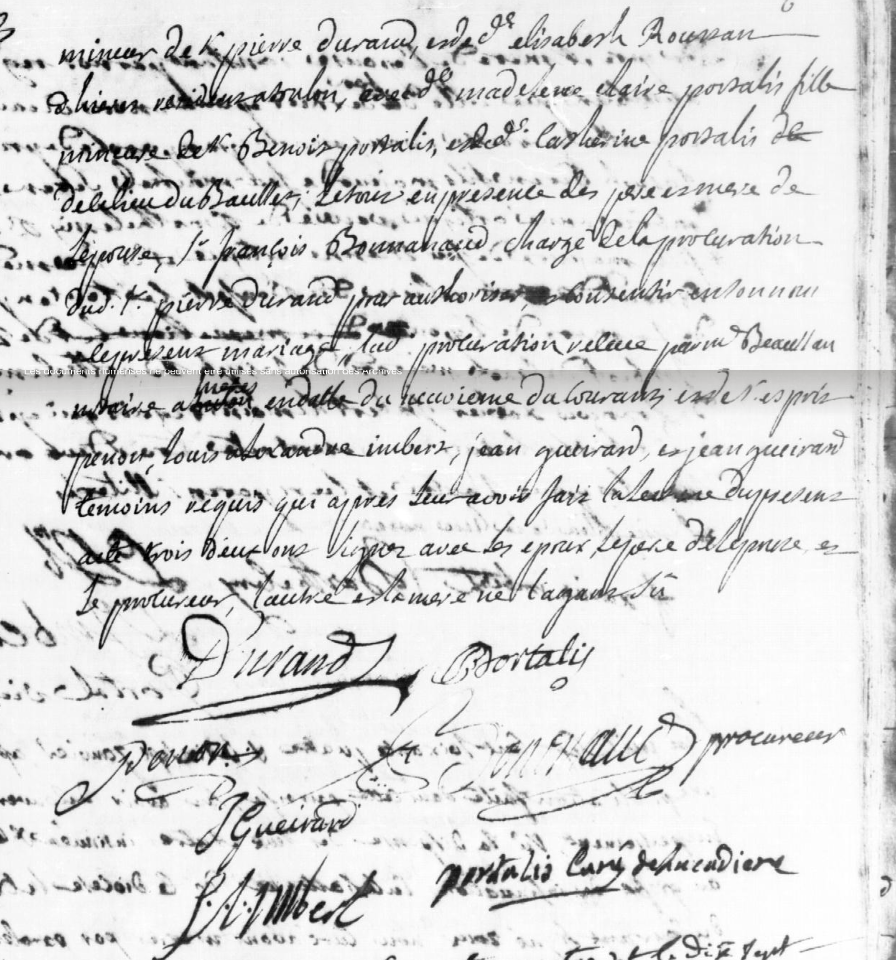 mineur de sr pierre durand, et de dlle elisabeth Roussan
d'hieres residents a toulon, avec dlle madeleine claire portalis fille
mineure de sr Benoit portalis, et de de. Catherine portalis de
de ce lieu du Bausset; le tout en presence des pere et mere de
l'epouse, sr françois Bonnaud, chargé de la procuration
dud. sr. pierre durand pere pour authoriser, consentir en son nom
le present mariage, lad procuration recüe par me Beaussan
notaire a hieres en datte du neuvieme du courant; et de sr esprit
penon, louis alexandre imbert, jean gueirard, et jean gueirard
temoins requis qui apres leur avoir fait la lecture du present
acte trois d'eux ont signez avec les epoux, le pere de l'epouse, et
le procureur, l'autre et la mere ne l'ayant sû
Durand BPortalis
penon Bonnaud procureur
J Gueirard
L.A. Imbert portalis Curé de la cadiere
le dix sept